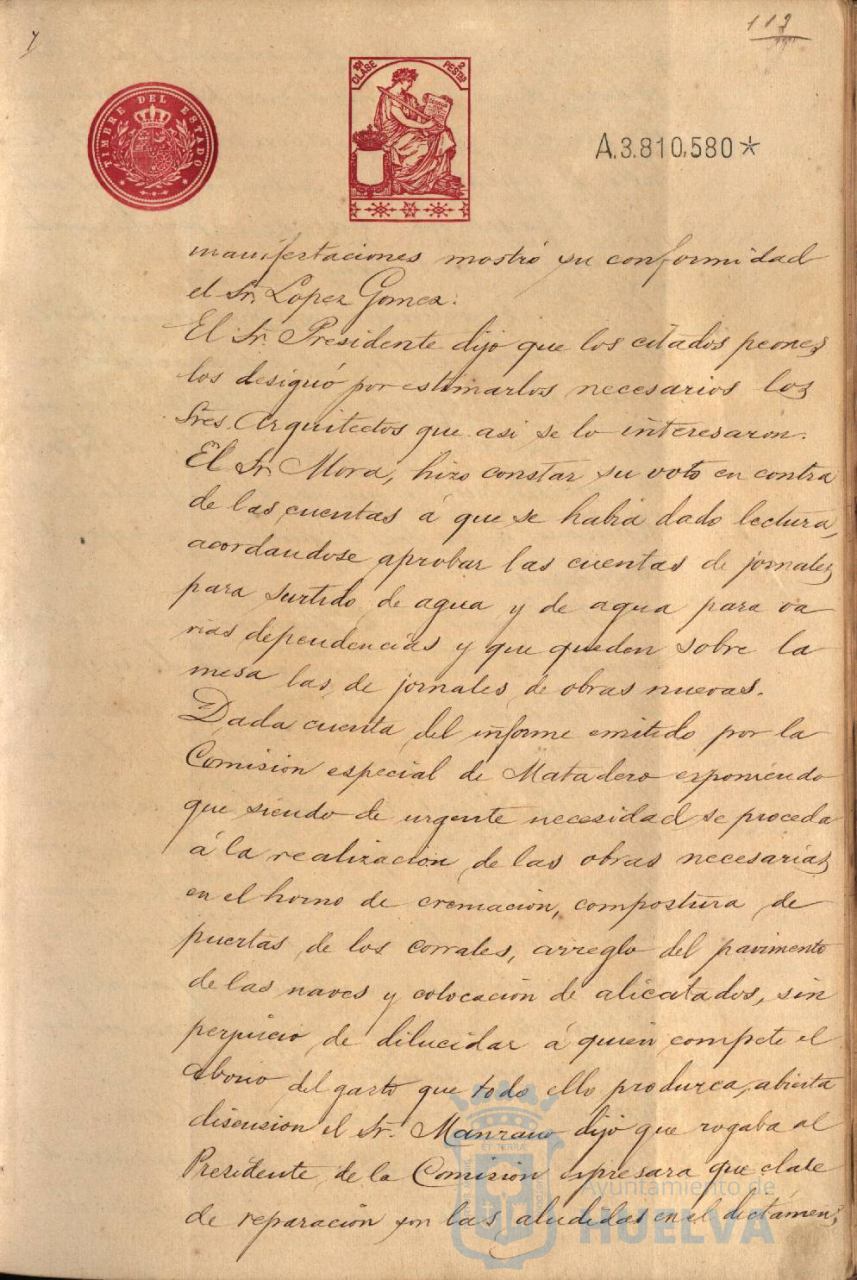 113
TIMBRE DEL ESTADO
10ª CLASE
2 PESTAS
A.3.810.580*
manifestaciones mostró su conformidad
el Sr. Lopez Gomez.
El Sr. Presidente dijo que los citados peones
los designó por estimarlos necesarios los
Sres. Arquitectos que asi se lo interesaron.
El Sr. Mora, hizo constar su voto en contra
de las cuentas á que se habia dado lectura,
acordandose aprobar las cuentas de jornales
para surtido de agua y de agua para va
rias dependencias y que queden sobre la
mesa las de jornales de obras nuevas.
Dada cuenta del informe emitido por la
Comision especial de Matadero exponiendo
que siendo de urgente necesidad se proceda
á la realizacion de las obras necesarias
en el horno de cremacion, compostura de
puertas de los corrales, arreglo del pavimento
de las naves y colocacion de alicatados, sin
perjuicio de dilucidar á quien compete el
abono del gasto que todo ello produzca, abierta
discusion el Sr. Manzano dijo que rogaba al
Presidente de la Comision espresara que clase
de reparacion son las aludidas en el dictámen,
Ayuntamiento de
HUELVA